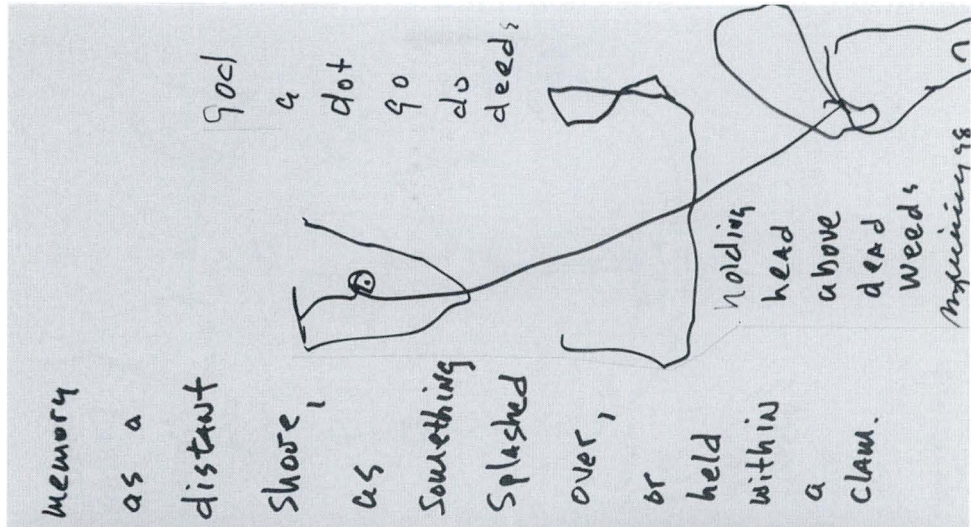 memory
as a
distant
shore,
as
something
splashed
over,
or
held
within
a
clam.
god
a
dot
go
do
deeds
holding
head
above
dead
weeds